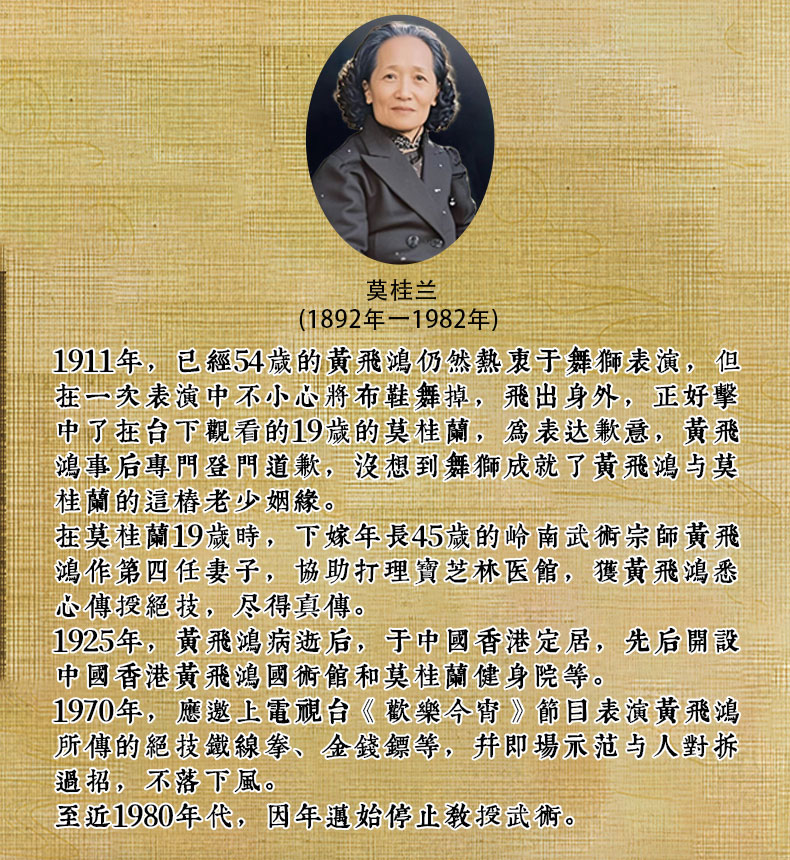 莫桂兰
(1892年一1982年)
1911年，已經54歲的黃飛鴻仍然熱衷于舞獅表演，但
在一次表演中不小心將布鞋舞掉，飛出身外，正好擊
中了在台下觀看的19歲的莫桂蘭，為表达歉意，黃飛
鴻事后專門登門道歉，沒想到舞獅成就了黃飛鴻与莫
桂蘭的這樁老少姻緣。
在莫桂蘭19歲時，下嫁年長45歲的岭南武術宗師黃飛
鴻作第四任妻子，協助打理寶芝林医館，獲黃飛鴻悉
心傳授絕技，尽得真傳。
1925年，黃飛鴻病逝后，于中國香港定居，先后開設
中國香港黃飛鴻國術館和莫桂蘭健身院等。
1970年，應邀上電視台《歡樂今宵》節目表演黃飛鴻
所傳的絕技鐵線拳、金錢鏢等，幷即場示范与人對拆
過招，不落下風。
至近1980年代，因年邁始停止教授武術。